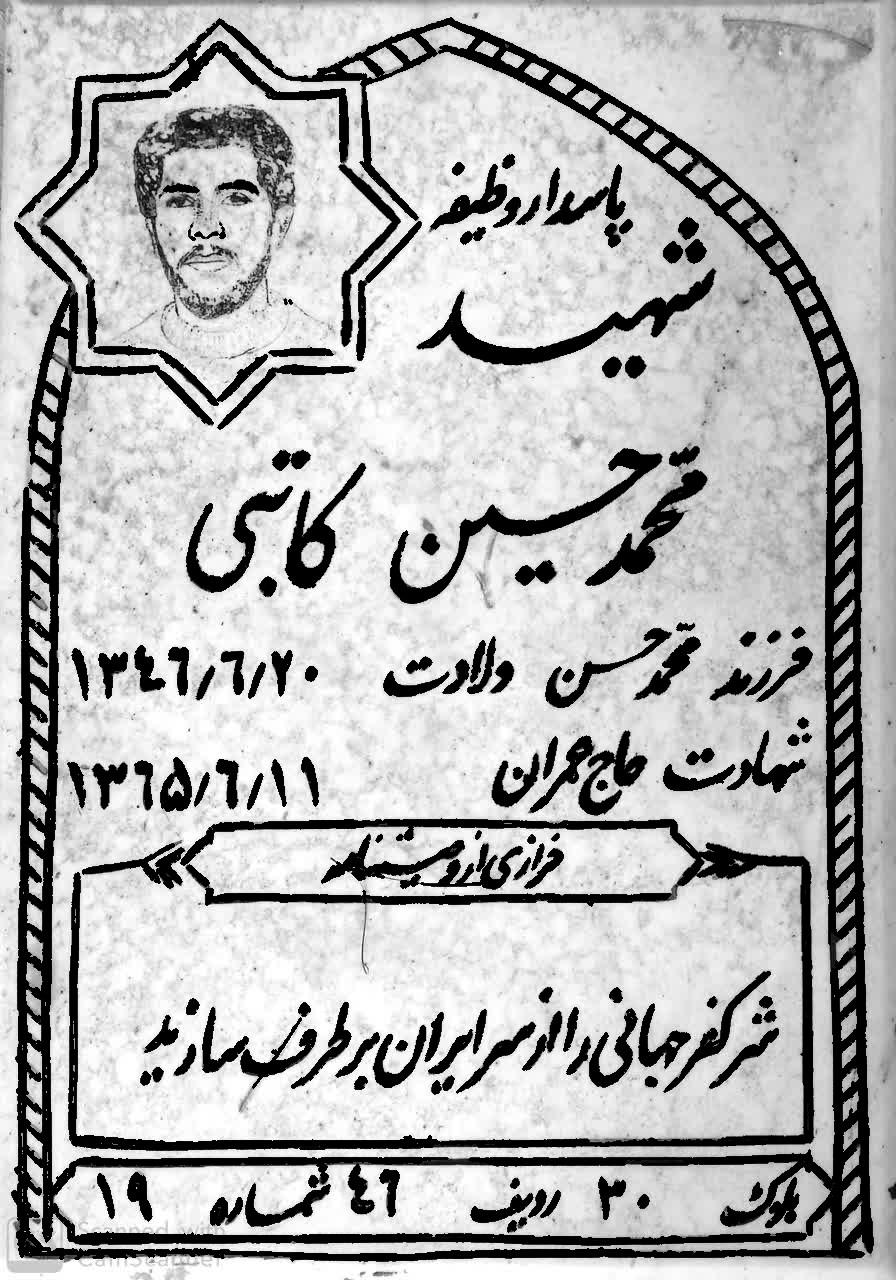 پاسدار وظیفه
شهید
محمّد حسین کاتبی
فرزند محمّد حسن ولادت ۱۳٤٦/٦/۲۰
شهادت حاج عمران ۱۳٦۵/٦/۱۱
فرازی از وصیتنامه
شر کفر جهانی را از سر ایران برطرف سازید
بلوک ۳۰ ردیف ٤٦ شماره ۱۹
Scanned with
CamScanner